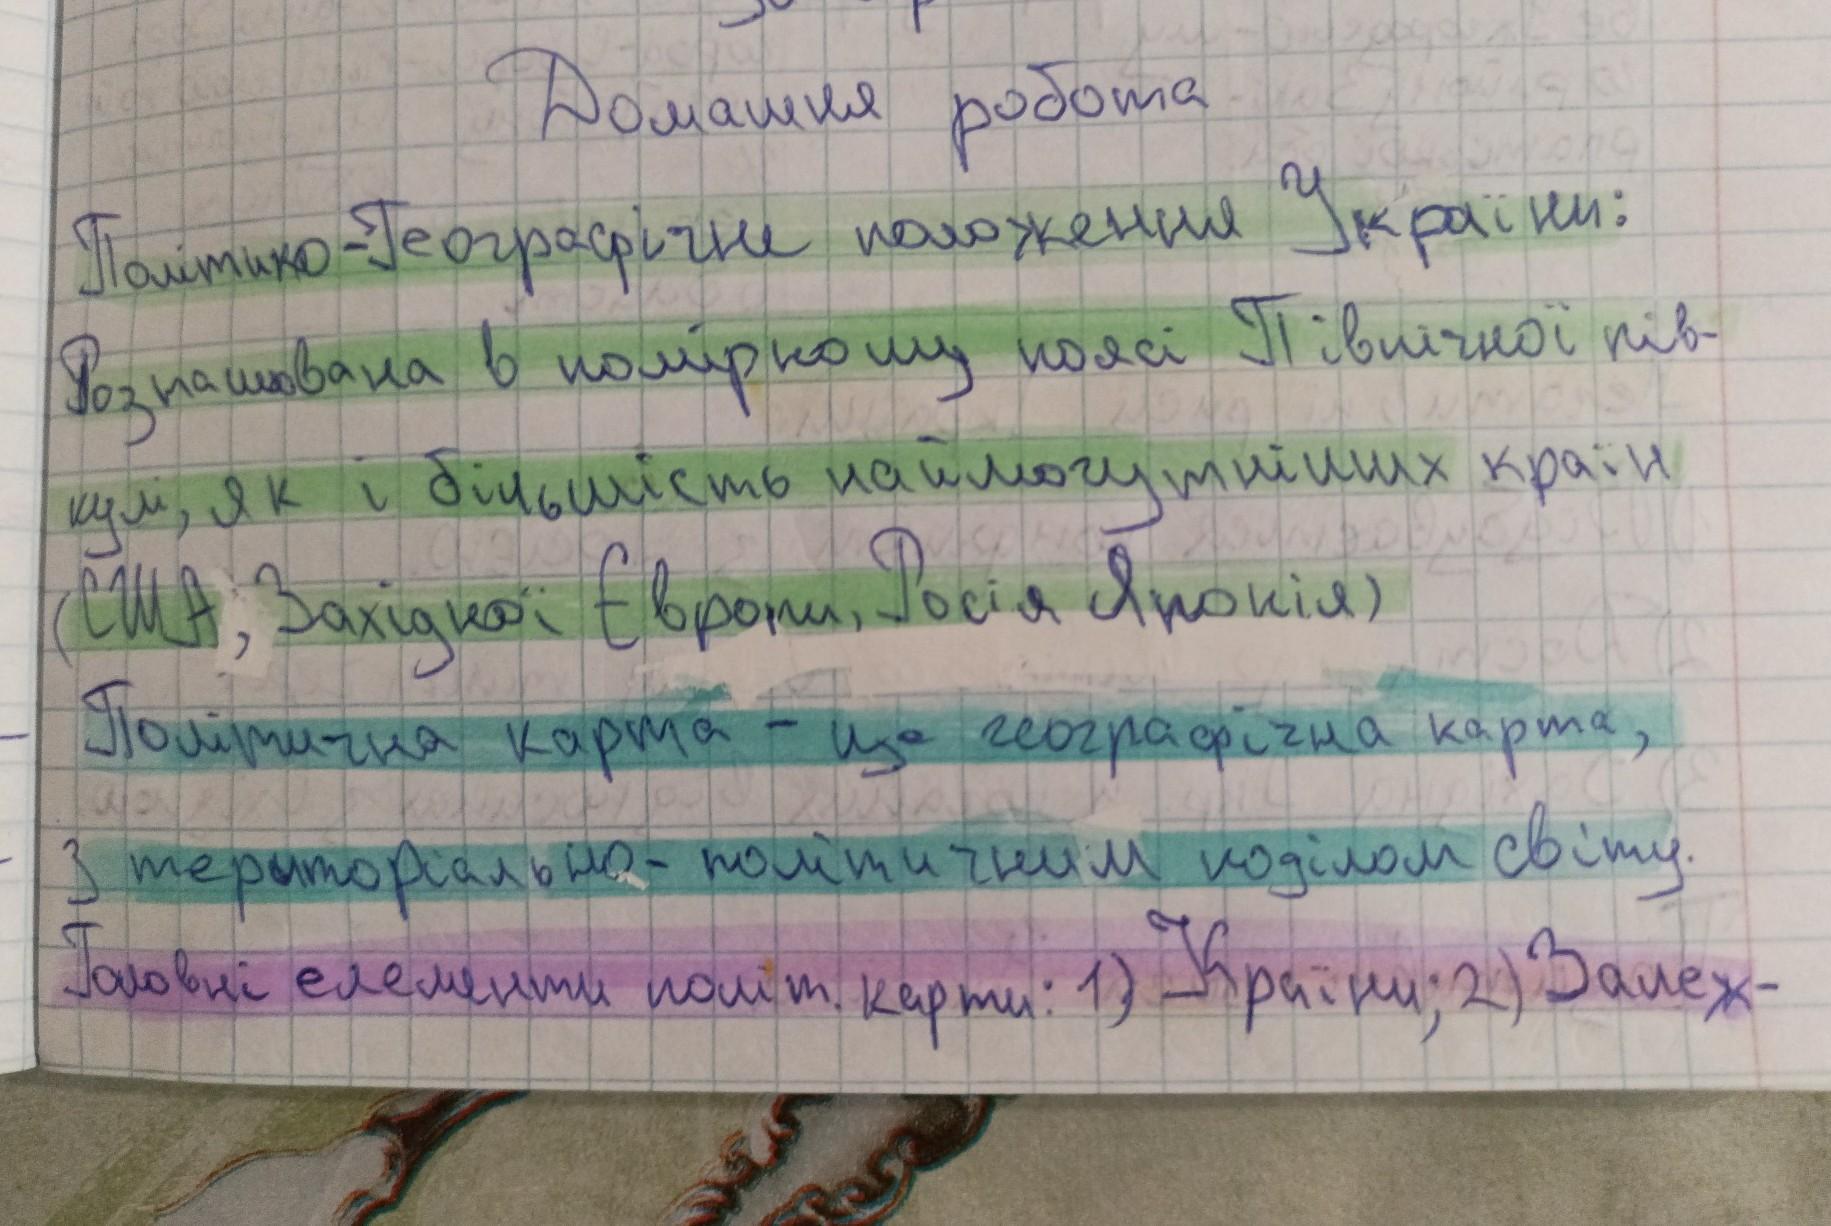 Домашня робота
Політико-Географічне положення України:
Розташована в помірному поясі Північної пів-
кулі, як і більшість наймогутніших країн
(США, Західної Європи, Росія Японія)
Політична карта - це географічна карта,
з територіально-політичним поділом світу.
Головні елементи політ. карти: 1) Країни; 2) Залеж-